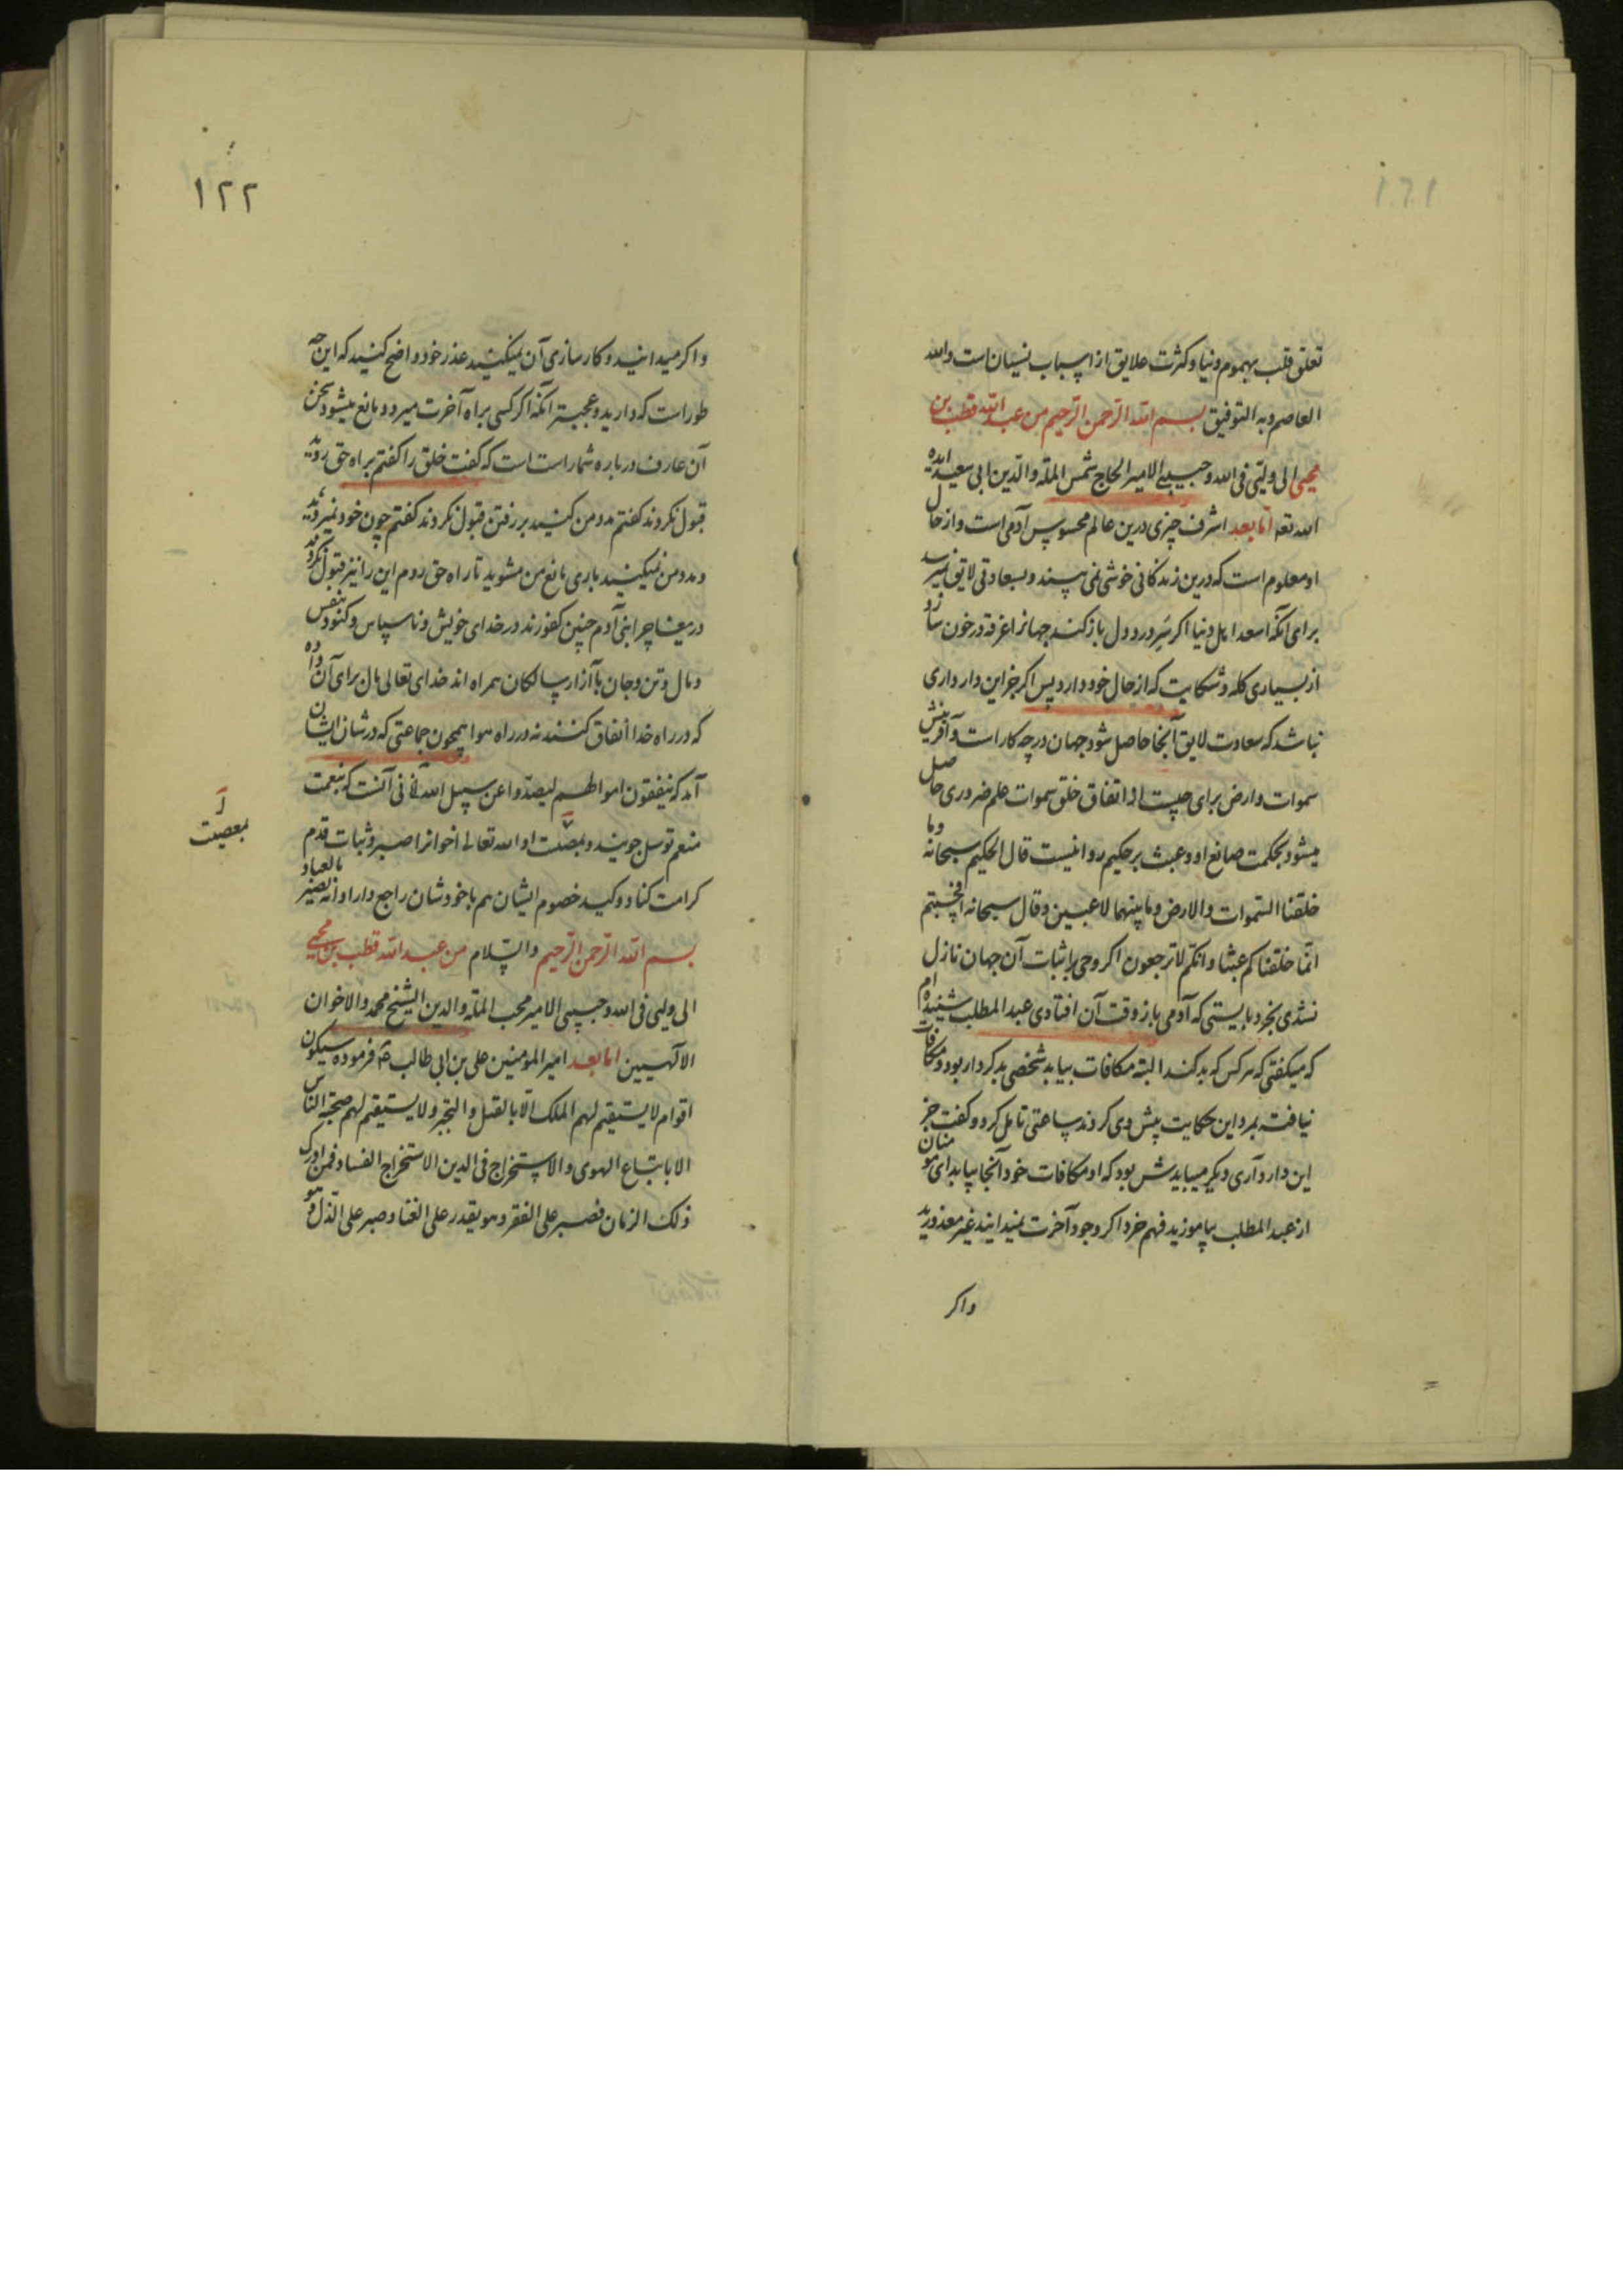 تعلق قلب بهموم دنیا و کثرت علایق از اسباب نسیان است والله
العاصم و به التوفیق بسم الله الرحمن الرحیم من عبد الله قطب بن
محیی الی ولیّی فی الله و حبیبی الامیر الحاج شمس الملة والدین ابی سعید ایده
الله تعه اما بعد اشرف چیزی درین عالم محسوس آدمی است و از حال
او معلوم است که درین زندکانی خوشی نمی بیند و بسعادتی لایق نمیرسد
برای آنکه اسعد اهل دنیا اکر سَرِ درد دل باز کند جهانرا غرقه در خون سازد
از بسیاری کله و شکایت که از حال خود دارد پس اکر جز این دار داری
نباشد که سعادت لایق آنجا حاصل شود جهان در چه کار است و آفرینش
سموات و ارض برای چیست الی اتفاق خلق سموات علم ضروری حاصل
میشود بحکمت صانع او و عبث بر حکیم روا نیست قال الحکیم سبحانه وما
خلقنا السموات والارض وما بینهما لاعبین وقال سبحانه افحسبتم
انما خلقناکم عبثا وانکم لا ترجعون اکر وحی باثبات آن جهان نازل
نشدی بخرد بایستی که آدمی باز وقت آن افتادی عبد المطلب شنیده ام
که میکفتی که هر کس که بد کند البته مکافات بیابد شخصی بد کردار بود و مکافات
نیافته بمرد این حکایت پیش وی کردند ساعتی تامل کرد و کفت جز
این دار داری دیکر میبایدش بود که او مکافات خود آنجا بیابد ای مومنان
از عبد المطلب بیاموزید فهم خرد اکر وجود آخرت نمیدانید غیر معذورید
واکر
۱۲۲
واکر میدانید و کار سازی آن نمیکنید عذر خود واضح کنید که این چه
طور است که دارید و عجبتر آنکه اکر کسی براه آخرت میرود مانع میشوید سخن
آن عارف درباره شما راست است که کفت خلق را کفتم براه حق روید
قبول نکردند کفتم مدد من کنید بر رفتن قبول نکردند کفتم چون خود نمیروید
و مدد من نمیکنید باری مانع من مشوید تا راه حق روم این را نیز قبول نکردند
دریغا چرا بنی آدم چنین کفورند در خدای خویش و ناسپاس و کنود و بنفس
و مال و تن و جان با آزار سالکان همراه اند خدای تعالی مال برای آن داده
که در راه خدا انفاق کنند نه در راه هوا همچون جماعتی که در شان ایشان
آمد که ینفقون اموالهم لیصدوا عن سبیل الله آنی آنست که بنعمت
منعم توسل جویند و بمعصیت او الله تعالی اخوانرا صبر و ثبات قدم
معصیت
کرامت کناد و کید خصوم ایشان هم با خودشان راجع دارد انه بصیر بالعباد
والسلام بسم الله الرحمن الرحیم من عبد الله قطب بن محیی
الی ولیی فی الله و حبیبی الامیر محب الملة والدین الشیخ محمد والاخوان
الآلهیین اما بعد امیر المومنین علی بن ابی طالب فرموده سیکون
اقوام لا یستقیم لهم الملک الا بالقتل والتجبر ولا یستقیم لهم صحبة الناس
الا باتباع الهوی والاستخراج فی الدین الاستخراج الفساد فمن ادرک
ذلک الزمان فصبر علی الفقر وهو یقدر علی الغنا وصبر علی الذل وهو